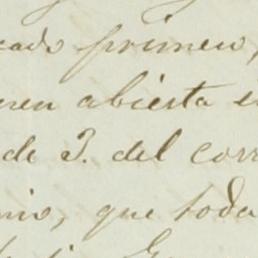 cado primero,
nen abierta e
de 3. del corr
nio, que toda